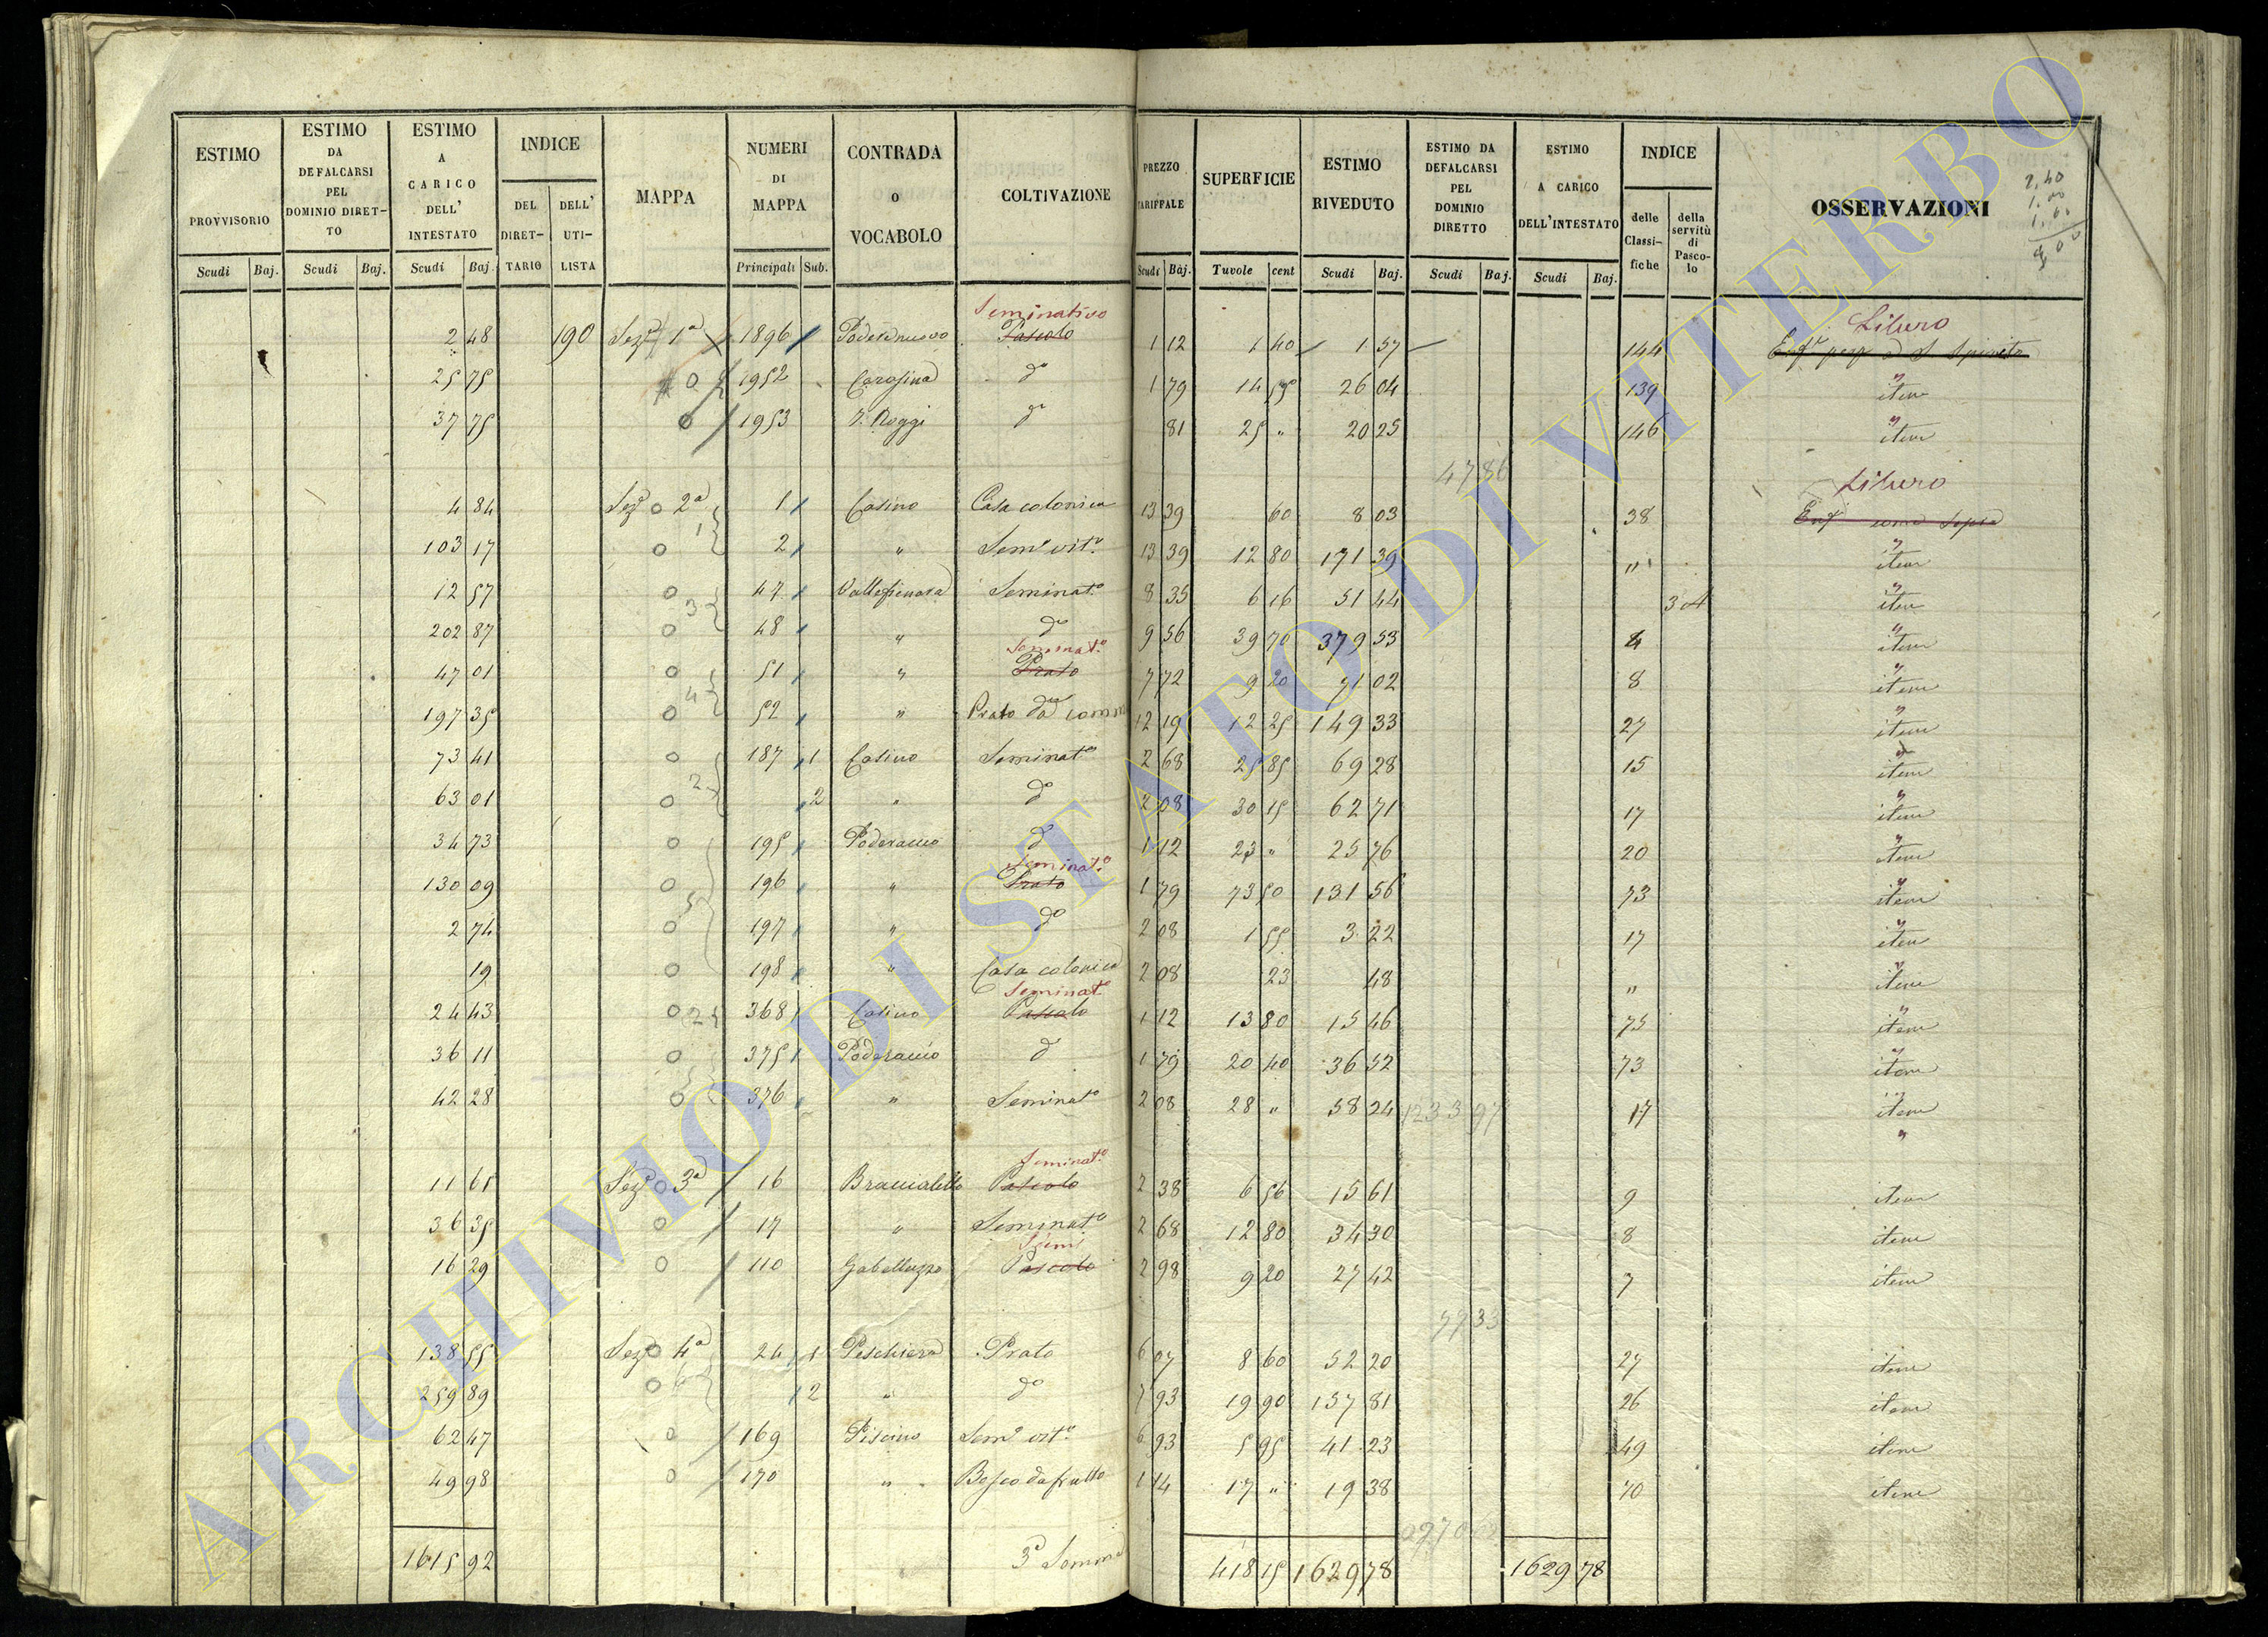 ESTIMO PROVVISORIO Scudi Baj. | ESTIMO DA DEFALCARSI PEL DOMINIO DIRET-TO Scudi Baj. | ESTIMO A CARICO DELL' INTESTATO Scudi Baj. | INDICE DEL DIRET-TARIO DELL' UTI-LISTA | MAPPA | NUMERI DI MAPPA Principali Sub. | CONTRADA o VOCABOLO | COLTIVAZIONE | PREZZO TARIFFALE Scudi Baj. | SUPERFICIE Tavole cent | ESTIMO RIVEDUTO Scudi Baj. | ESTIMO DA DEFALCARSI PEL DOMINIO DIRETTO Scudi Baj. | ESTIMO A CARICO DELL'INTESTATO Scudi Baj. | INDICE delle Classi-fiche della servitù di Pasco-lo | OSSERVAZIONI
Seminativo Libero
2 48 190 Sez.e 1a 1896 Poderenuovo Pascolo 1 12 1 40 1 57 144
25 75 0 1952 do 1 79 14 55 26 04 139 " item
37 75 0 1953 do 81 25 " 20 25 146 " item
47 86
Libero
4 84 Sez.e 0 2a 1 Casino Casa colonica 13 39 60 8 03 38 come sopra
103 17 0 2 " Sem.o vit.o 13 39 12 80 171 39 " " item
12 57 0 47 Seminat.o 8 35 6 16 51 44 304 " item
202 87 0 48 " do 9 56 39 70 379 53 4 " item
Seminat.o
47 01 0 51 " Prato 7 72 9 20 71 02 8 " item
197 35 0 52 " Prato 12 19 12 25 149 33 27 " item
73 41 0 187 1 Casino Seminat.o 2 68 25 85 69 28 15 " item
63 01 0 2 " do 2 08 30 15 62 71 17 " item
34 73 0 195 Poderaccio do 1 12 23 " 25 76 20 " item
Seminat.o
130 09 0 196 " Prato 1 79 73 50 131 56 73 " item
2 74 0 197 " do 2 08 1 55 3 22 17 " item
19 0 198 " Casa colonica 2 08 23 48 " " item
Seminat.o
24 43 0 368 Casino Pascolo 1 12 13 80 15 46 75 " item
36 11 0 375 Poderaccio do 1 79 20 40 36 52 73 " item
42 28 0 376 " Seminat.o 2 08 28 " 58 24 1233 97 17 " item
"
Seminat.o
11 65 Sez.e 0 3a 16 Braccialetto Pascolo 2 38 6 56 15 61 9 item
36 35 0 17 " Seminat.o 2 68 12 80 34 30 8 item
Sem
16 29 0 110 Gabelluzzo Pascolo 2 98 9 20 27 42 7 item
77 33
138 55 Sez.e 0 4a 24 1 Peschiera Prato 6 07 8 60 52 20 27 item
259 89 0 2 " do 7 93 19 90 157 81 26 item
62 47 0 169 Piscino Sem.o vit.o 6 93 5 95 41 23 49 item
49 98 0 170 " Bosco da frutto 1 14 17 " 19 38 70 item
1615 92 3a Somma 418 15 1629 78 1629 78
ARCHIVIO DI STATO DI VITERBO